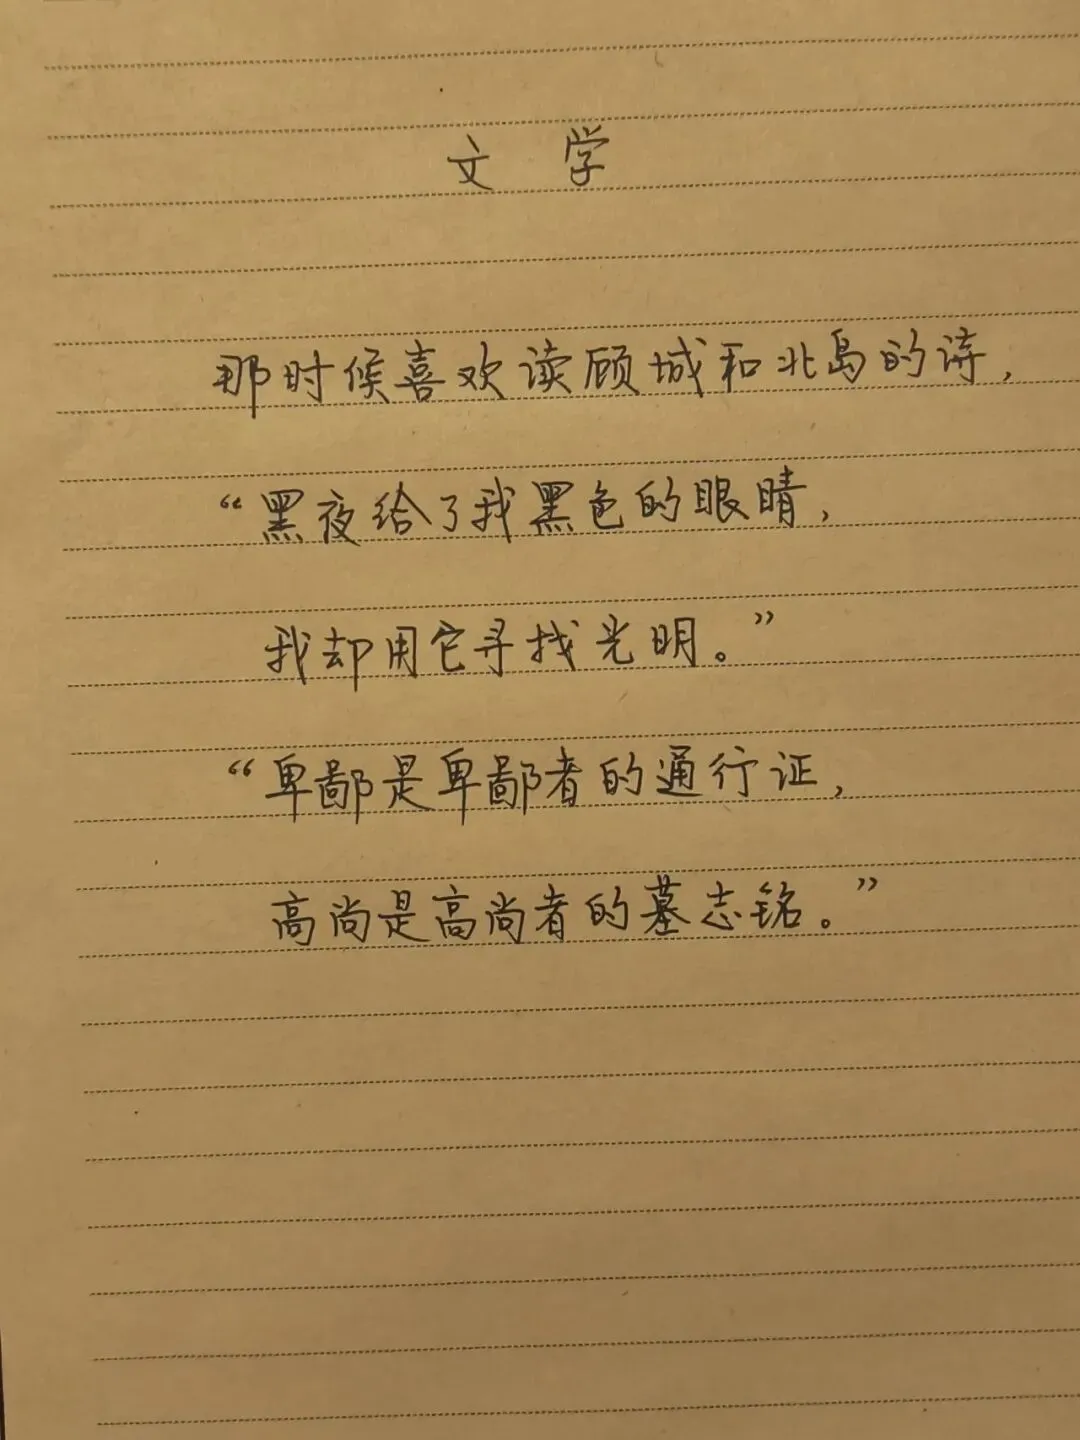 文 学
那时候喜欢读顾城和北岛的诗，
“黑夜给了我黑色的眼睛，
我却用它寻找光明。”
“卑鄙是卑鄙者的通行证，
高尚是高尚者的墓志铭。”